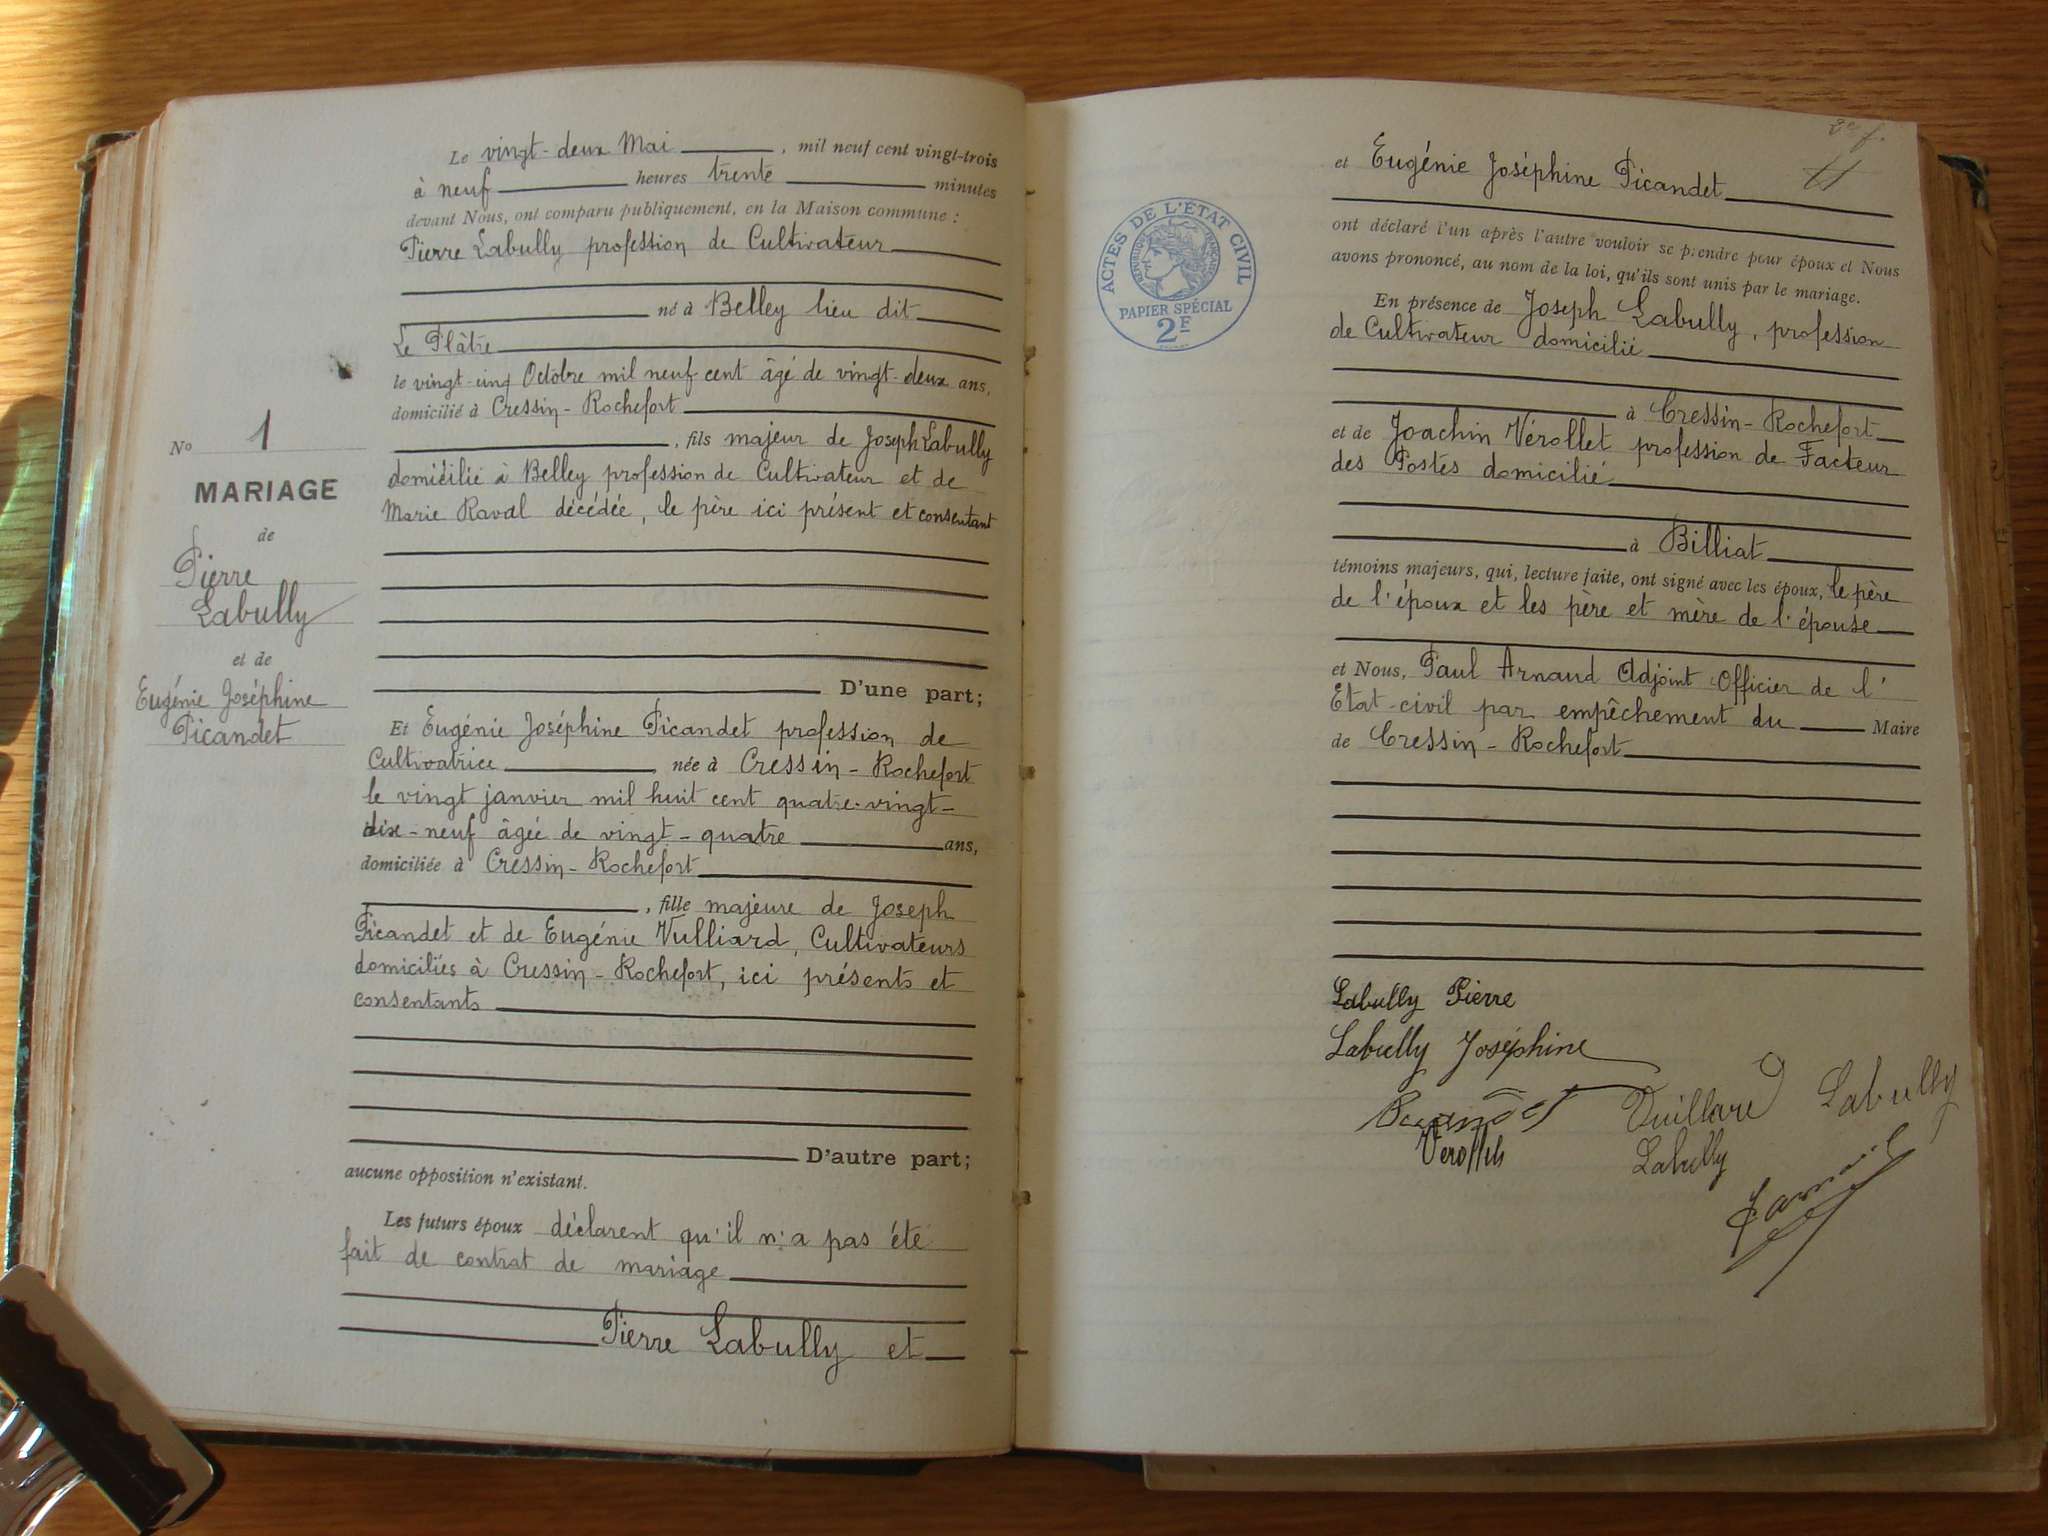 Le vingt-deux Mai, mil neuf cent vingt-trois
à neuf heures trente minutes
devant Nous, ont comparu publiquement, en la Maison commune :
Pierre Labully profession de Cultivateur
né à Belley lieu dit
Le Plâtre
le vingt-cinq Octobre mil neuf cent âgé de vingt-deux ans,
domicilié à Cressin-Rochefort
, fils majeur de Joseph Labully
domicilié à Belley profession de Cultivateur et de
Marie Raval décédée, le père ici présent et consentant
D'une part;
No 1
MARIAGE
de
Pierre
Labully
et de
Eugénie Joséphine
Picandet
Et Eugénie Joséphine Picandet profession de
Cultivatrice, née à Cressin-Rochefort
le vingt janvier mil huit cent quatre-vingt-
dix-neuf âgée de vingt-quatre ans,
domiciliée à Cressin-Rochefort
, fille majeure de Joseph
Picandet et de Eugénie Vulliard, Cultivateurs
domiciliés à Cressin-Rochefort, ici présents et
consentants
D'autre part;
aucune opposition n'existant.
Les futurs époux déclarent qu'il n'a pas été
fait de contrat de mariage
Pierre Labully et
2e f.
11
et Eugénie Joséphine Picandet
ont déclaré l'un après l'autre vouloir se prendre pour époux et Nous
avons prononcé, au nom de la loi, qu'ils sont unis par le mariage.
En présence de Joseph Labully, profession
de Cultivateur domicilié
à Cressin-Rochefort
et de Joachin Vérollet profession de Facteur
des Postes domicilié
à Billiat
témoins majeurs, qui, lecture faite, ont signé avec les époux, le père
de l'époux et les père et mère de l'épouse
et Nous, Paul Arnaud Adjoint Officier de l'
Etat-civil par empêchement du Maire
de Cressin-Rochefort
ACTES DE L'ÉTAT CIVIL
RÉPUBLIQUE FRANÇAISE
PAPIER SPÉCIAL
2F
Labully Pierre
Labully Joséphine
Picandet Vuillard Labully
Labully